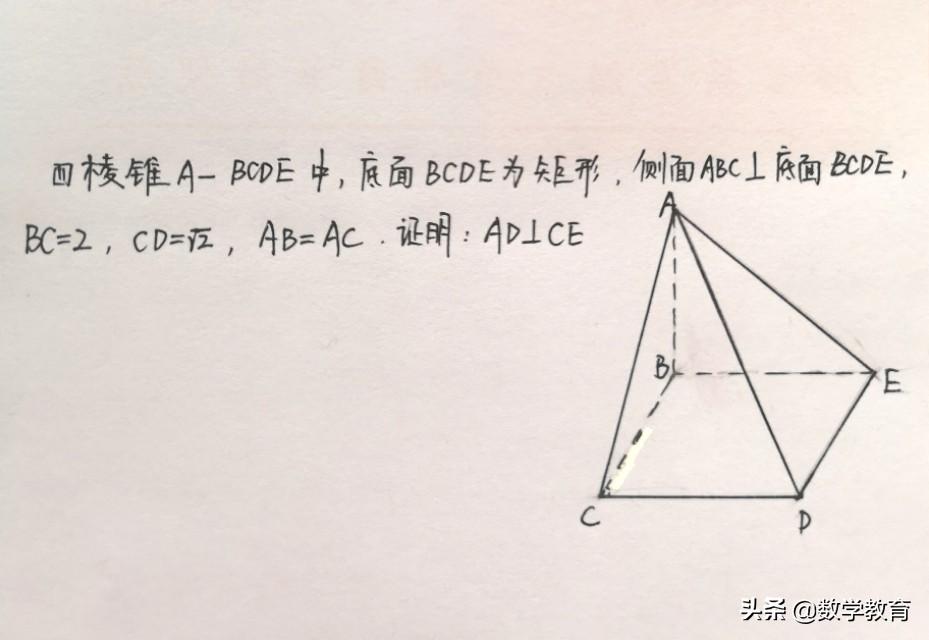 四棱锥A-BCDE中,底面BCDE为矩形,侧面ABC⊥底面BCDE,
BC=2,CD=√2,AB=AC.证明:AD⊥CE
A
B
E
C
D
头条 @数学教育